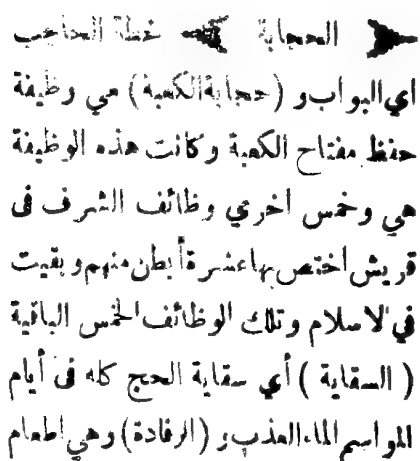 الحجابة خطة الحاجب
اي البواب و (حجابة الكعبة) هي وظيفة
حفظ مفتاح الكعبة وكانت هذه الوظيفة
هي وخمس اخري وظائف الشرف فى
قريش اختص بها عشرة أبطن منهم وبقيت
في لاسلام وتلك الوظائف الخمس الباقية
( السقاية ) أي سقاية الحج كله فى أيام
المواسم الماء العذب و (الرفادة) وهي اطعام